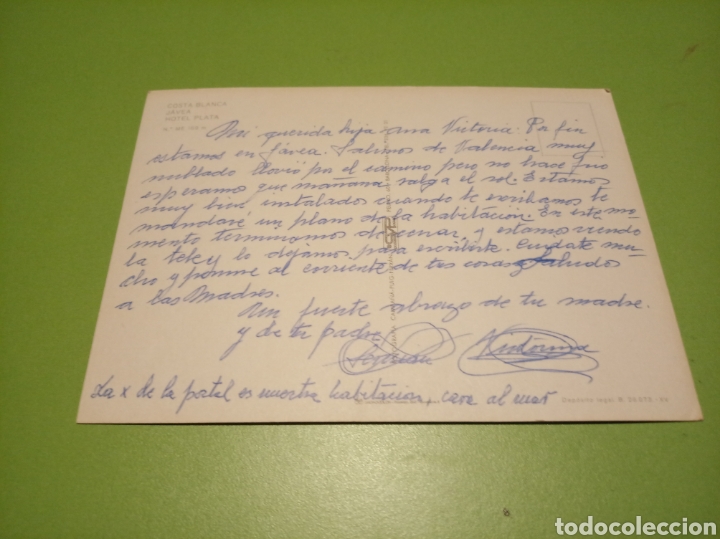 COSTA BLANCA
JAVEA
HOTEL PLATA
Muy querida hija Ana Victoria: Por fin
estamos en Jávea. Salimos de Valencia muy
nublado llovió por el camino pero no hace frio
esperamos que mañana salga el sol. Estamos
muy bien instalados cuando te escribamos te
mandaré un plano de la habitación. En este mo-
mento terminamos de cenar, y estamos viendo
la tele y lo dejamos para escribirte. Cuidate mu-
cho y ponme al corriente de tus cosas Saludos
a las Madres.
Un fuerte abrazo de tu madre
y de tu padre
La x de la postal es nuestra habitación, cara al mar
Depósito legal B.
todocoleccion